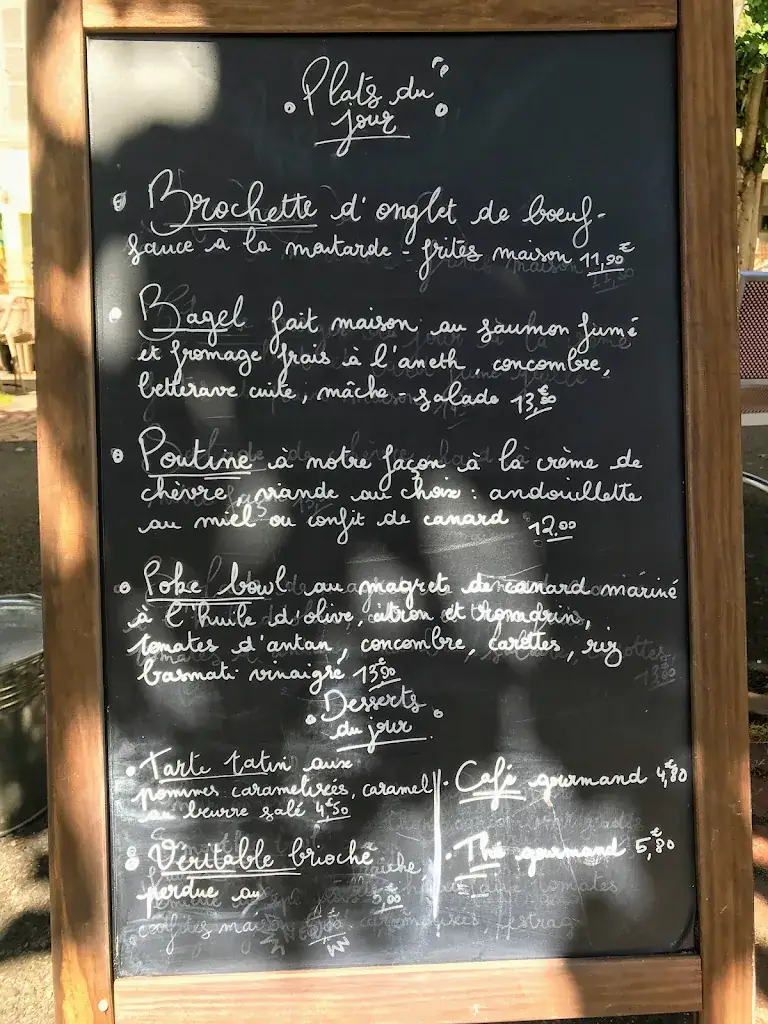 Plats du
jour
Brochette d'onglet de boeuf-
sauce à la moutarde - frites maison 11,90€
Bagel fait maison au saumon fumé
et fromage frais à l'aneth, concombre,
betterave cuite, mâche - salade 13,80€
Poutine à notre façon à la crème de
chèvre, viande au choix : andouillette
au miel ou confit de canard 12,00
Poke bowl au magret de canard mariné
à l'huile d'olive, citron et
tomates d'antan, concombre, carottes, riz
basmati vinaigré 13,90€
Desserts
du jour
Tarte tatin aux
pommes caramelisées, caramel
au beurre salé 4,50€
Véritable brioche
perdue au
5,00
Café gourmand 4,80€
Thé gourmand 5,80€